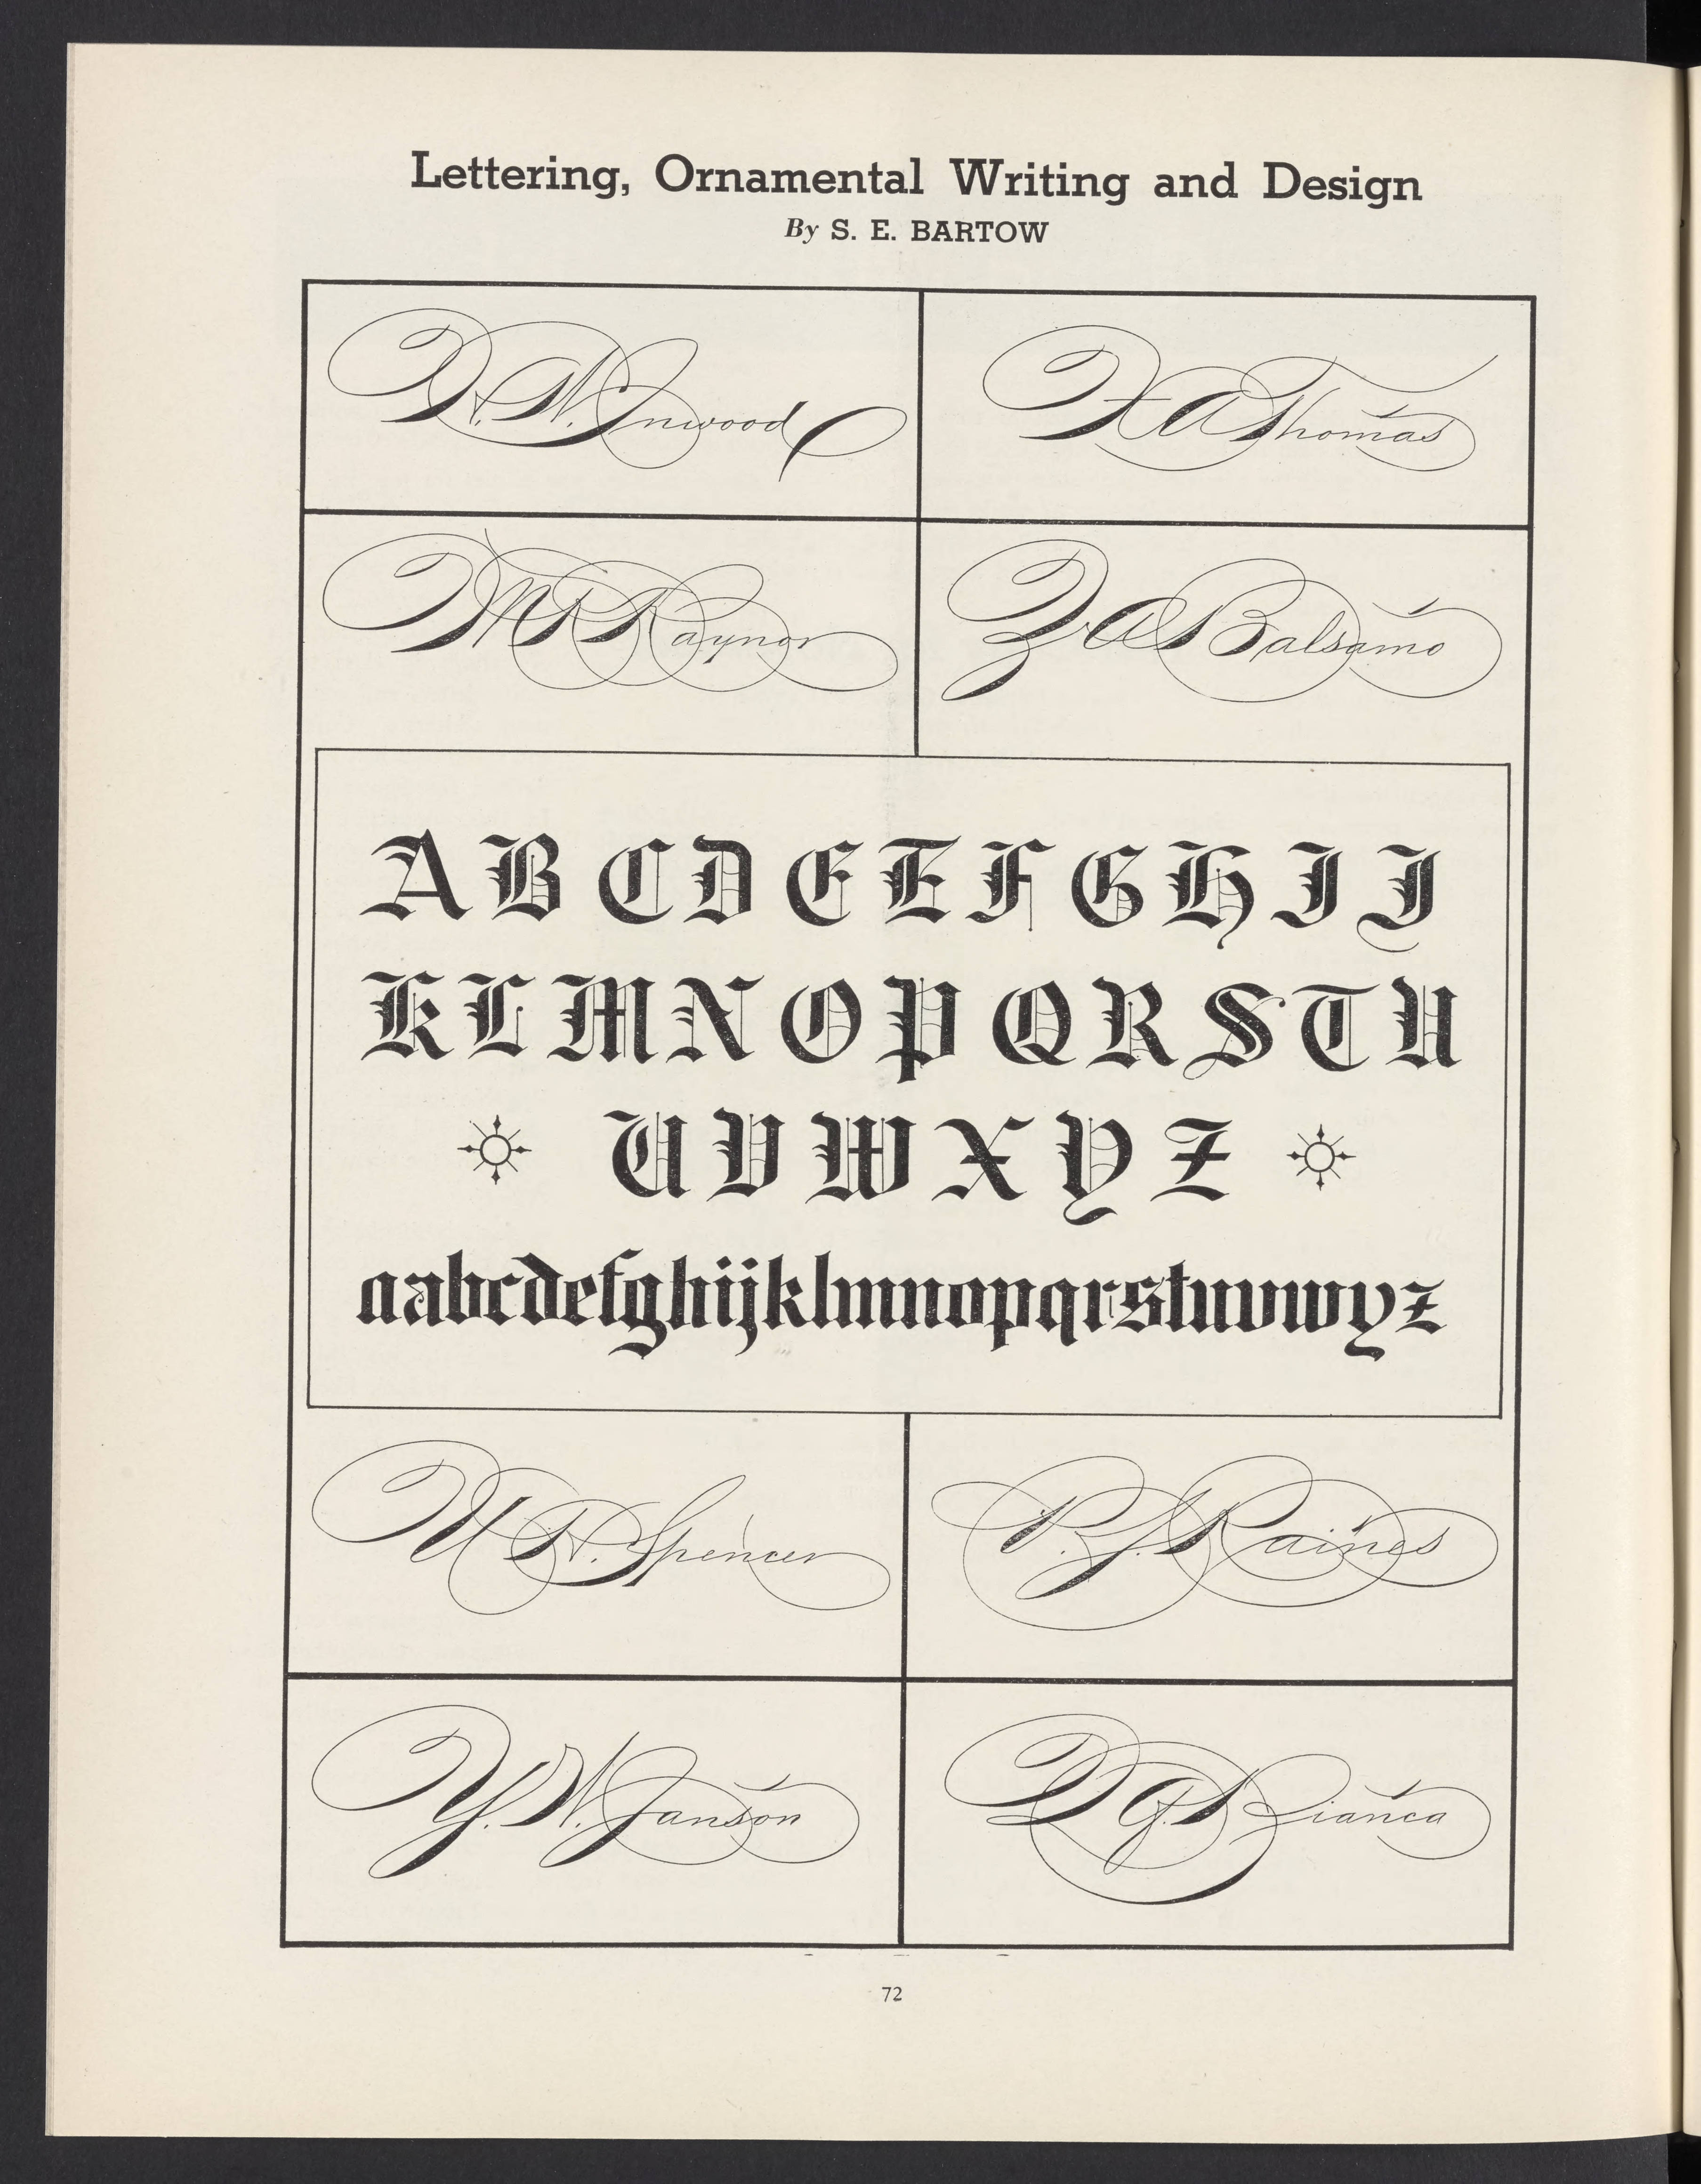 Lettering, Ornamental Writing and Design
By S. E. BARTOW
Inwood
X A Thomas
Raynor
Z A Balsamo
A B C D E E F G H I J
K L M N O P Q R S T U
U V W X Y Z
aabcdefghijklmnopqrstuvwyz
Spencer
P. J. Raines
Y. N. Janson
D G. Bianca
72